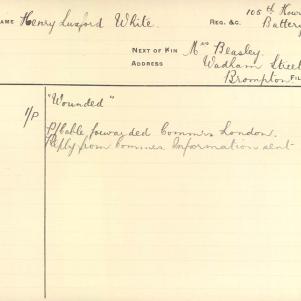 NAME Henry Luxford White. REG. &C. 105th How
Batter
NEXT OF KIN Mrs Beasley.
ADDRESS Wadham Street
Brompton FIL
"Wounded"
I/P P/Cable forwarded Commrs London.
Reply from Commrs Information sent